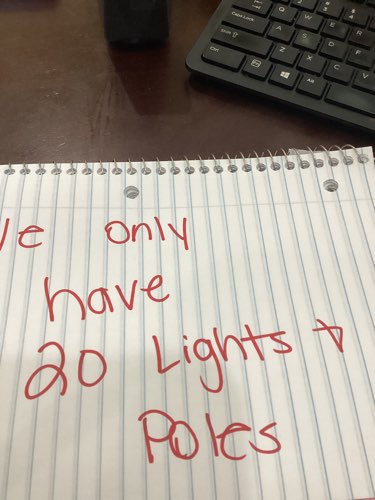 Ve only
have
20 Lights +
Poles
Caps Lock A S D F G
Shift Z X C V
Ctrl Alt
Q W E R